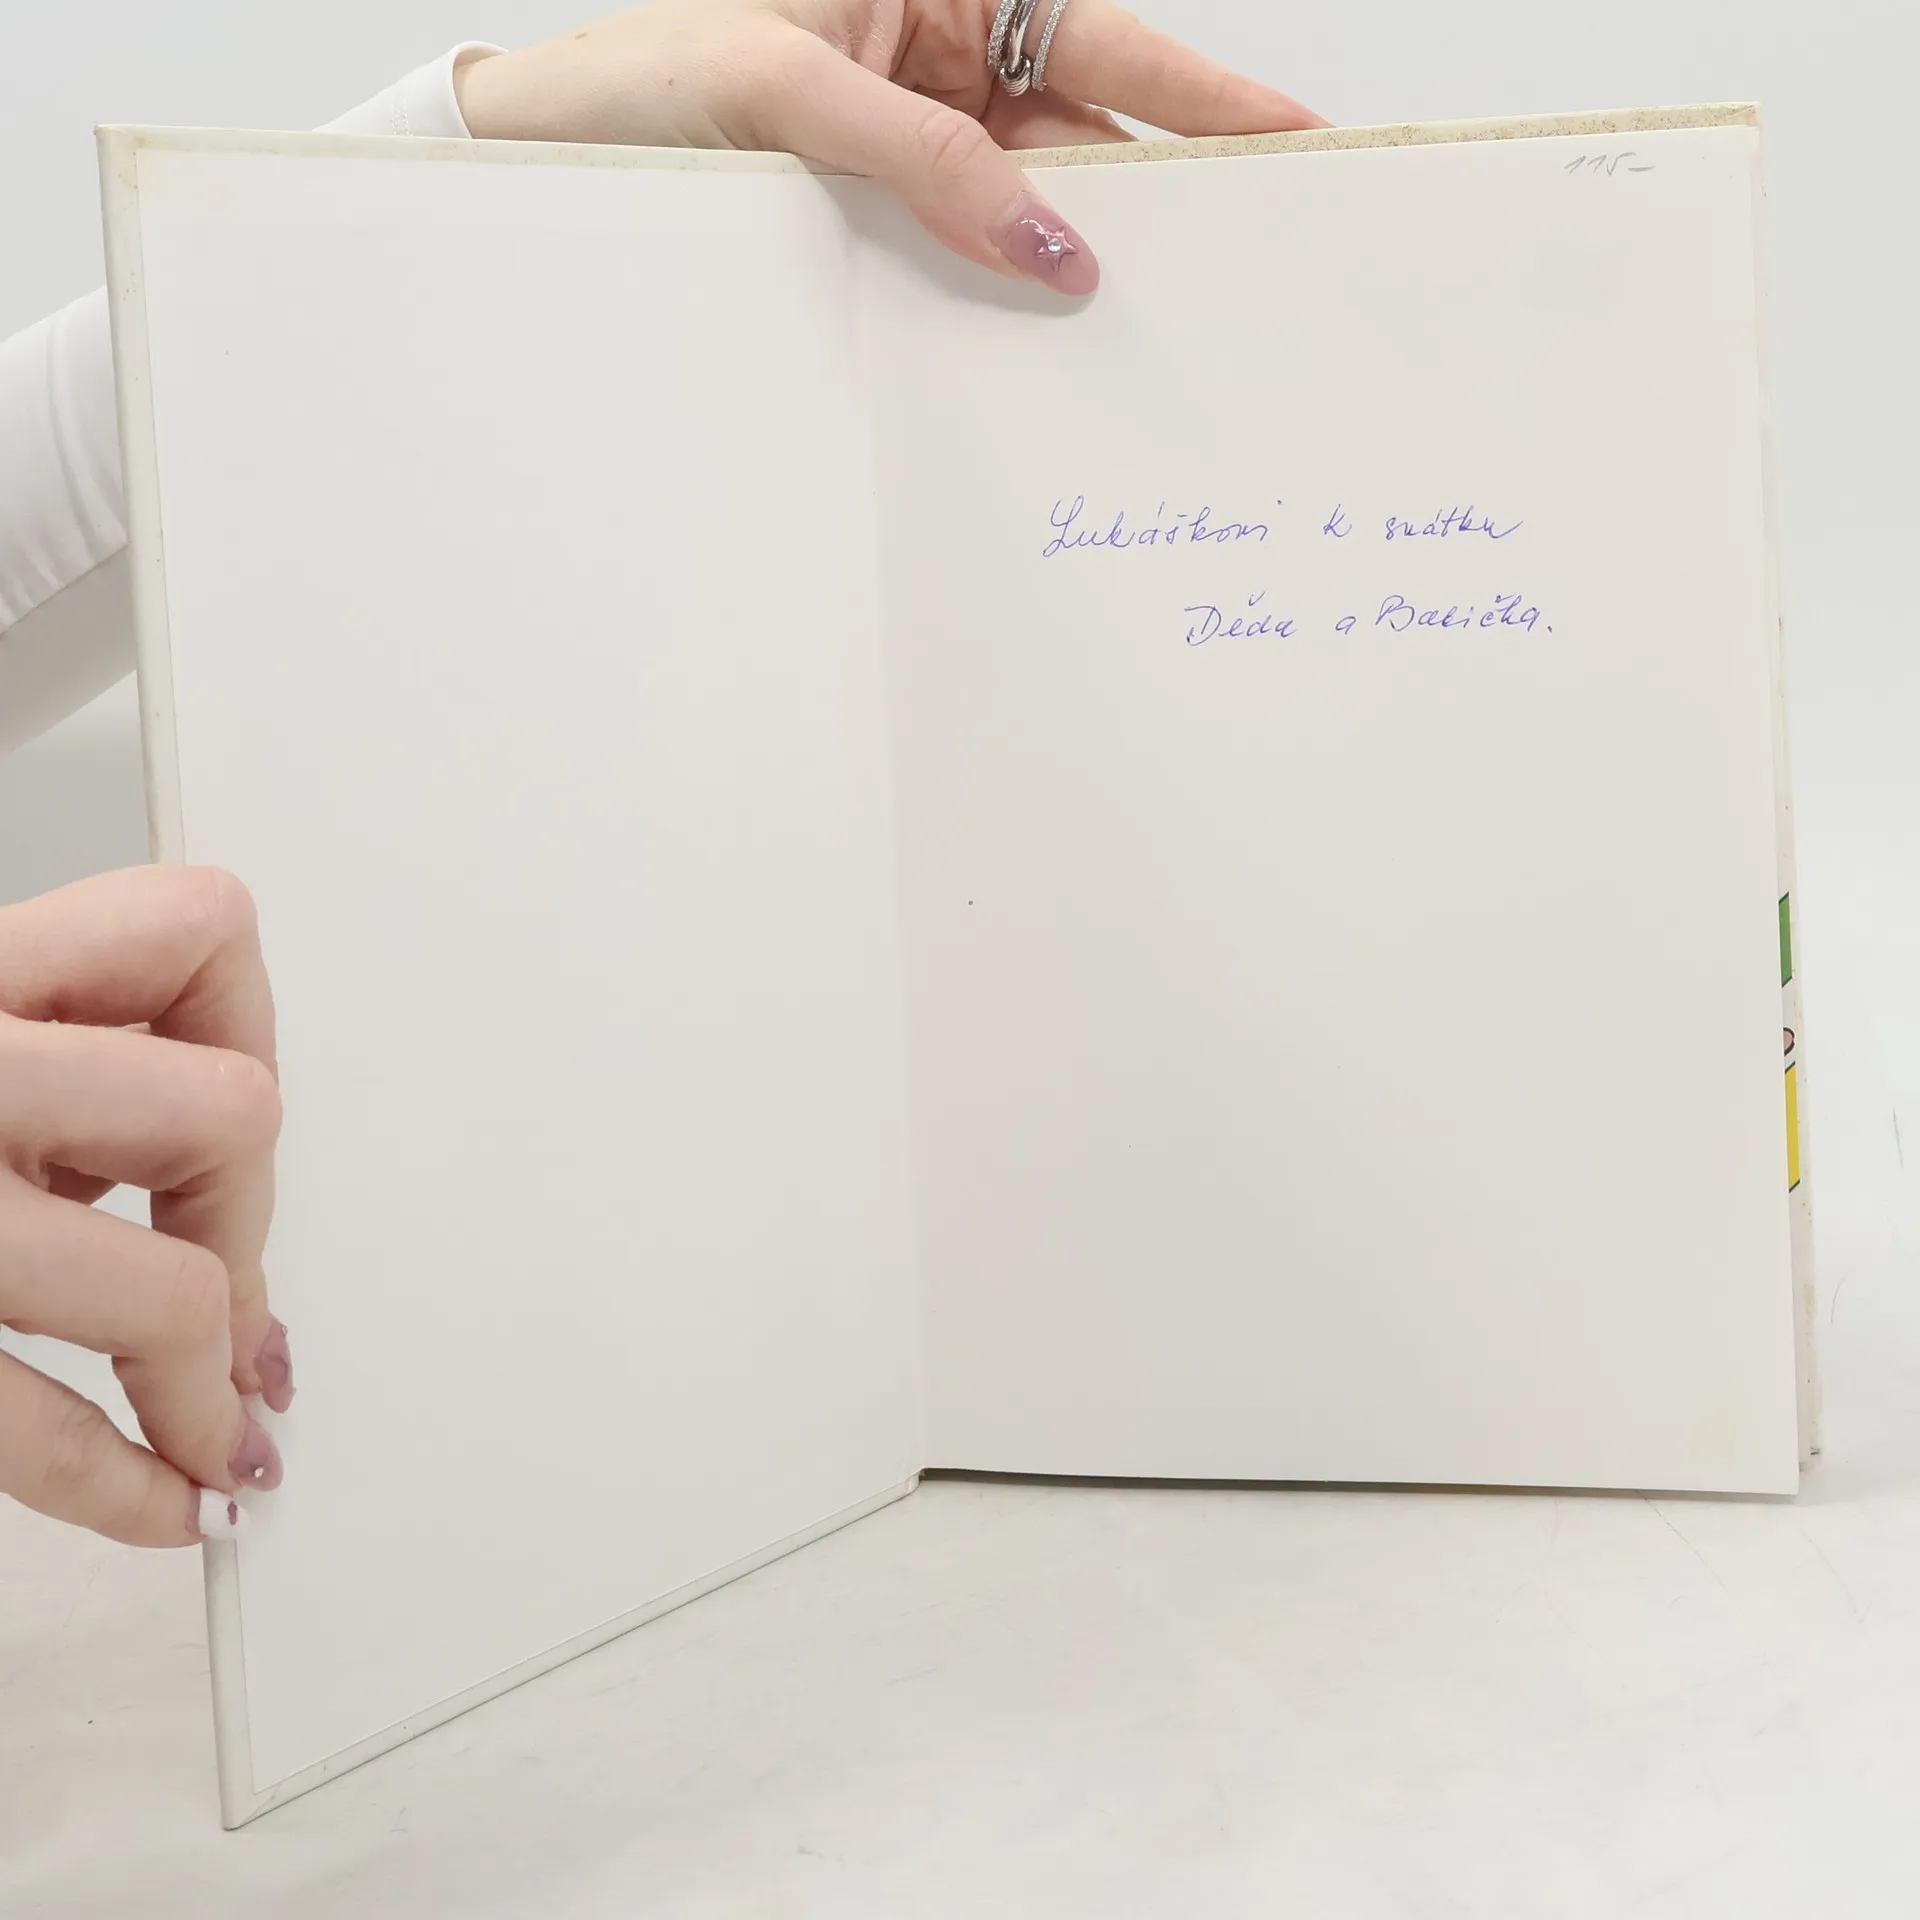 115-
Lukáškovi k svátku
Děda a Babička.